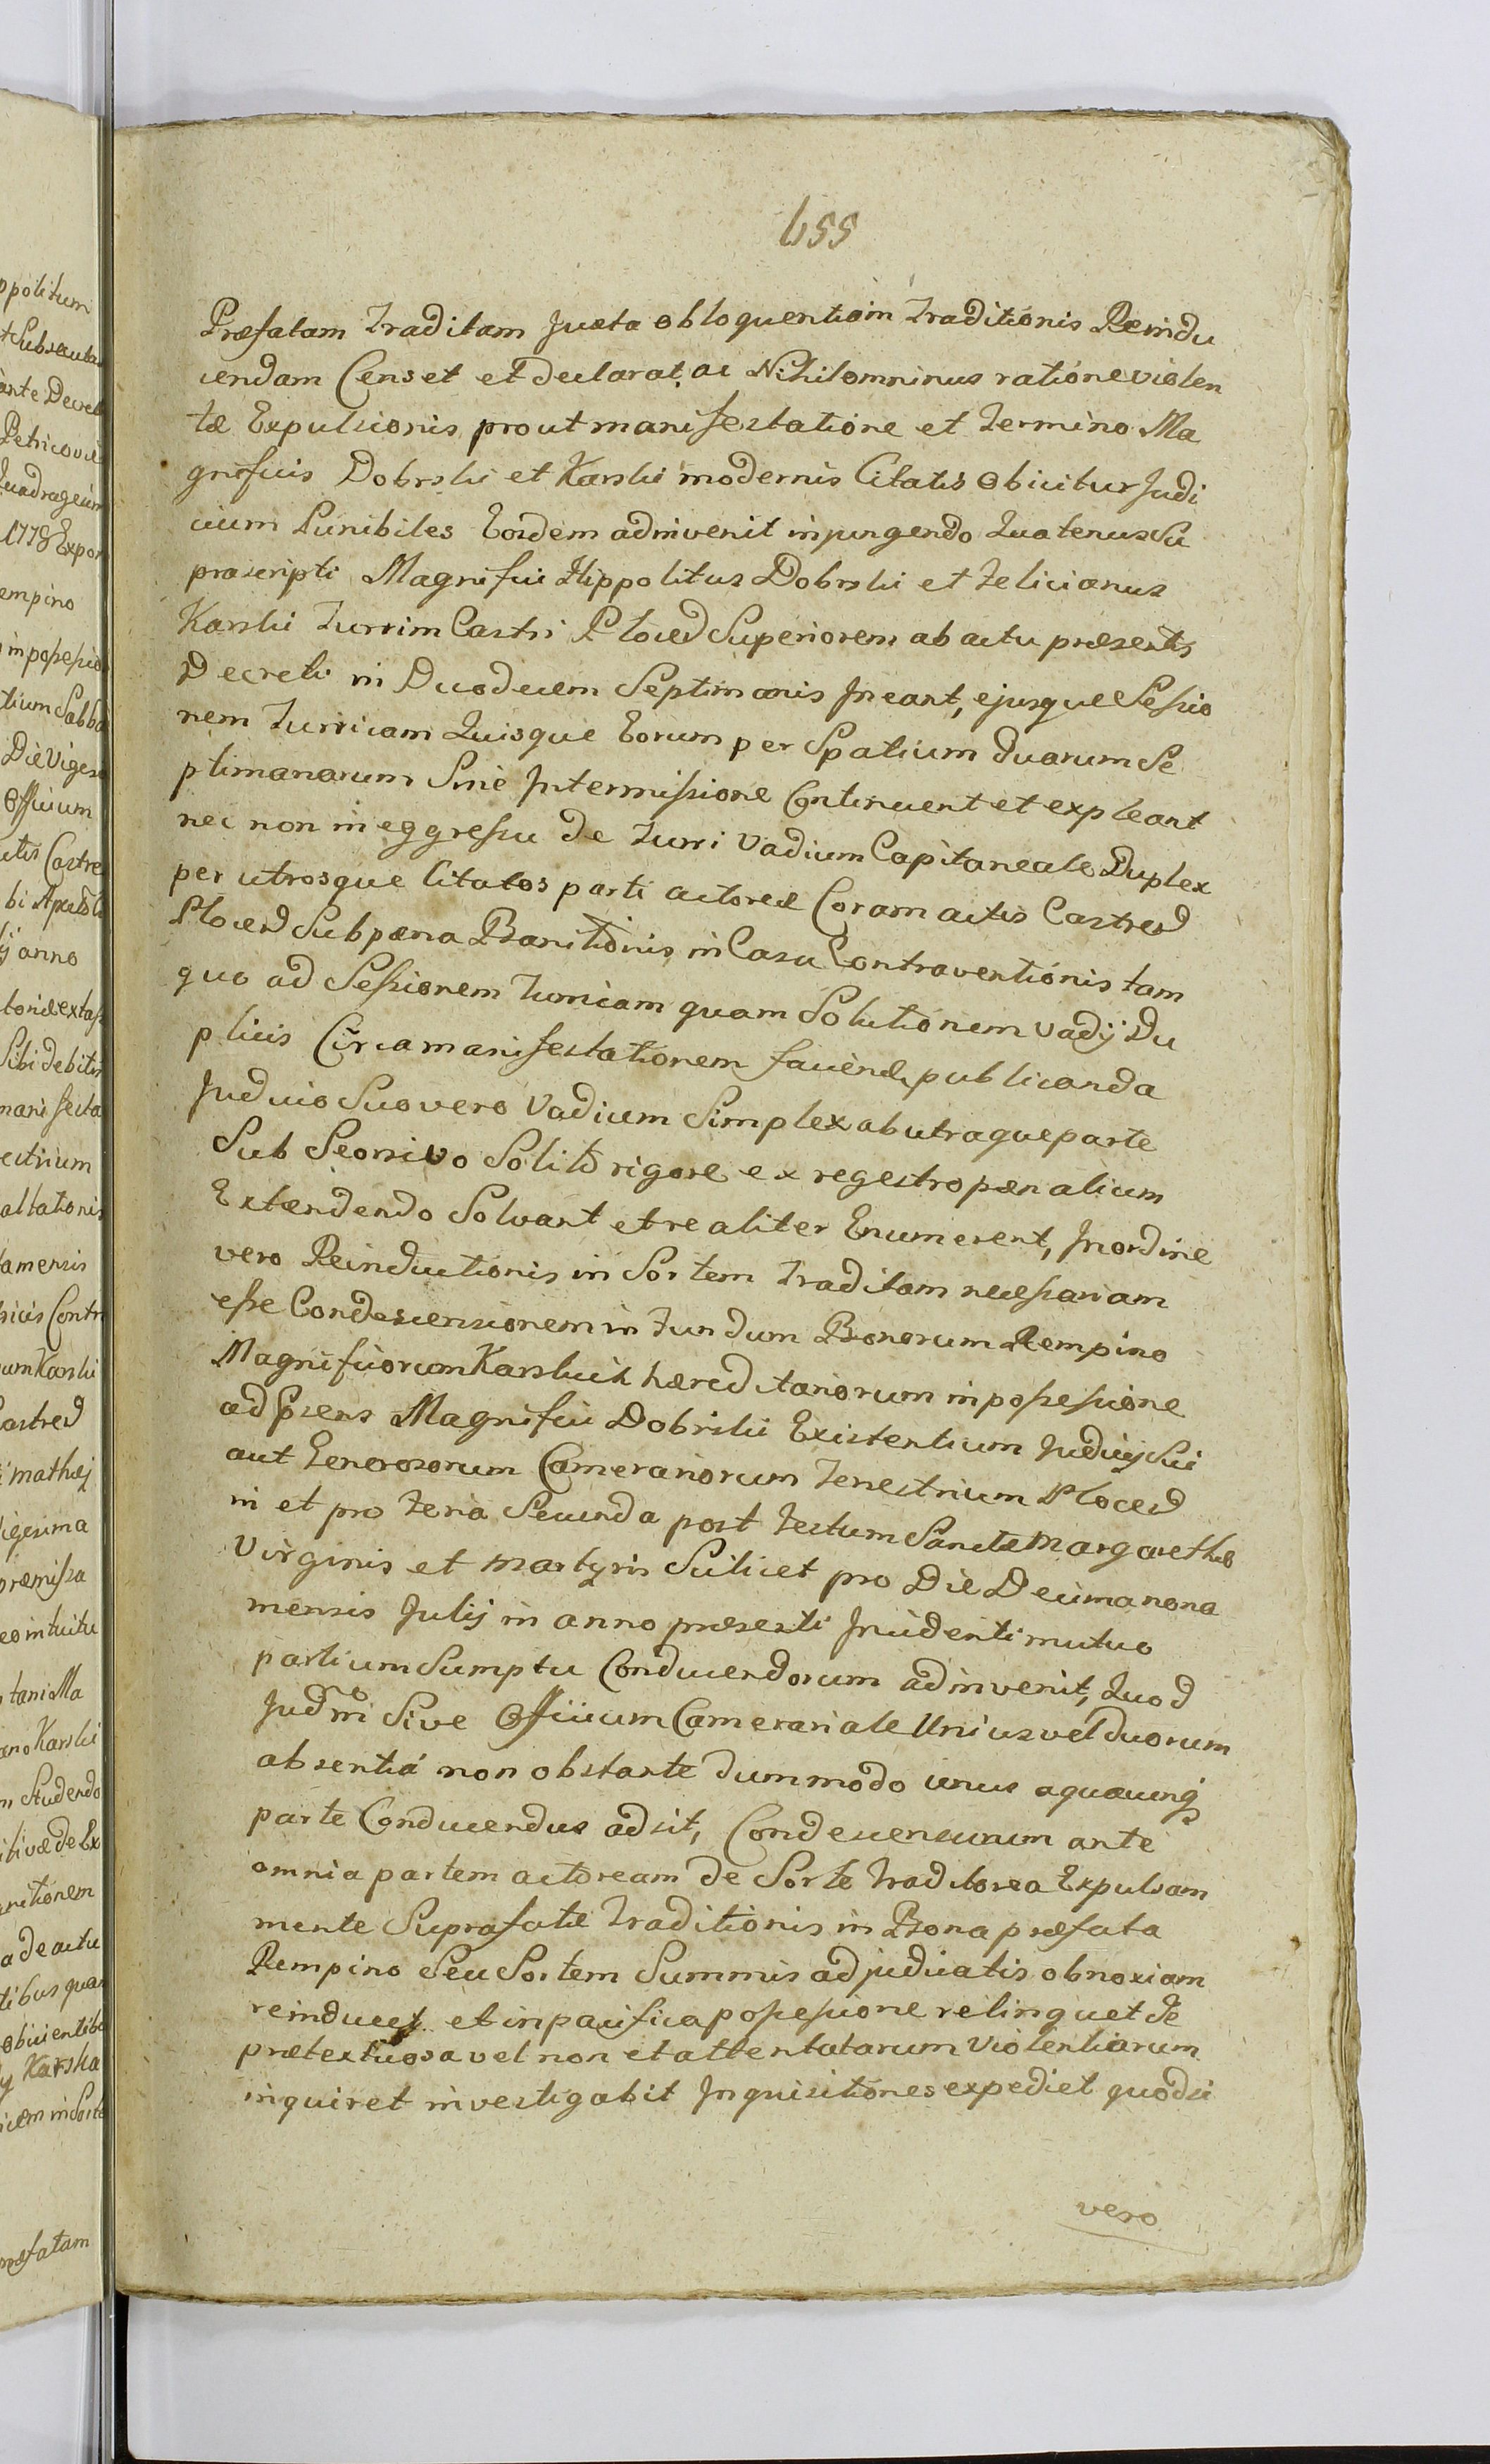 655
Præfatam Traditam Juxta obloquentiam Traditionis Reindu
cendam Censet et declarat, ac Nihilomninus ratione violen
tæ Expulsionis prout manifestatione et Termino Ma
gnificis Dobrski et Karski modernis Citatis Obicitur Judi
cium Punibiles Eosdem adinvenit injungendo Quatenus Su
prascripti Magnifici Hippolitus Dobrski et Felicianus
Karski Turrim Castri Ploceñ Superiorem ab actu præsentis
Decreti in Duodecem Septimanis Ineant, ejusque Seſsio
nem Turricam Quisque Eorum per Spatium duarum Se
ptimanarum Sine Intermiſsione Continuent et expleant
nec non in eggreſsu de Turri Vadium Capitaneale Duplex
per utrosque Citatos parti actoreæ Coram actis Castreñ
Ploceñ Sub pæna Banitionis in Casu Contraventionis tam
quo ad Seſsionem Turricam quam Solutionem Vadij Du
plicis Circa manifestationem publicanda
Judicio Suo vero Vadium Simplex ab utraque parte
Sub Seorsivo Solito rigore ex regestro pænalium
Extendendo Solvant et realiter Enumerent, In ordine
vero Reinductionis in Sortem Traditam neceſsariam
eſse Condescensionem in Fundum Bonorum Rempino
Magnificorum Karskich hæreditariorum in poſseſsione
ad præns Magnifici Dobrski Existentium Judicij Sui
aut Generosorum Camerariorum Terrestrium Ploceñ
in et pro Feria Secunda post Festum Sanctæ Margarethæ
Virginis et Martyris Scilicet pro Die Decima nona
mensis Julij in anno præsenti Incidenti mutuo
partium Sumptu Conducendorum adinvenit, Quod
Judm Sive Officium Camerariale Unius vel duorum
absentia non obstante dummodo unus a quacunq
parte Conducendus adsit, Condescensurum ante
omnia partem actoream de Sorte Traditorea Expulsam
mente Suprafatæ Traditionis in Bona præfata
Rempino Seu Sortem Summis adjudicatis obnoxiam
reinducet et in pacifica poſseſsione relinquet de
prætextuosa vel non et attentatarum Violentiarum
inquiret investigabit Inquisitiones expediet quodsi
vero